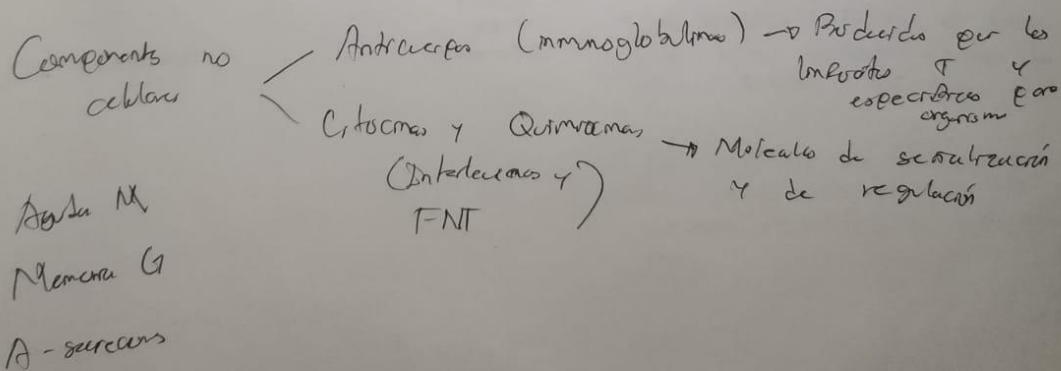 Componentes no celulares
Anticuerpos (inmunoglobulinas) → Producidos por los
linfocitos T y
específicos para
organismo
Citocinas y Quimiocinas
(Interleucinas y
TNF)
→ Moléculas de señalización
y de regulación
Aguda M
Memoria G
A - secreciones